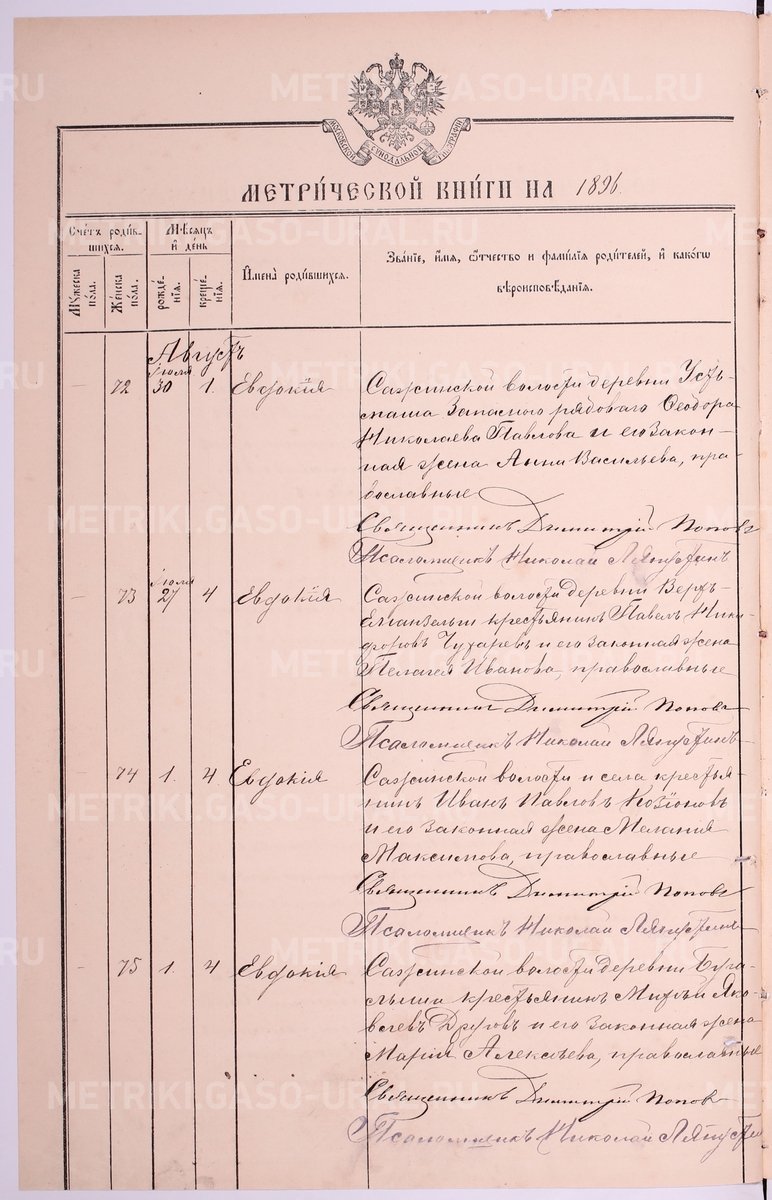 METRIKI.GASO-URAL.RU
МОСКОВСКОЙ СѴНОДАЛЬНОЙ ТИПОГРАФІИ
МЕТРИ́ЧЕСКОЙ КНИ́ГИ НА 1896.
Сче́тъ роди́вшихся.
Мꙋ́жеска по́ла.
Же́нска по́ла.
Мѣ́сѧцъ и҆ де́нь
рожде́нїѧ.
креще́нїѧ.
И҆мена̀ роди́вшихсѧ.
Зва́нїе, и҆́мѧ, ѻ҆́тчество и фами́лїѧ роди́телей, и҆ како́гѡ
вѣроисповѣ́данїѧ.
Августъ
— 72 Іюля 30 1. Евдокія
Сажинской волости деревни Усть-
маша Запаснаго рядоваго Ѳеодора
Николаева Павлова и его закон-
ная жена Анна Васильева, пра-
вославные
Священникъ Димитрій Поповъ
Псаломщикъ Николай Ляпустинъ
— 73 Іюля 27 4 Евдокія
Сажинской волости деревни Верхъ-
крестьянинъ Павелъ Ники-
форовъ Чухаревъ и его законная жена
Пелагея Иванова, православные
Священникъ Димитрій Поповъ
Псаломщикъ Николай Ляпустинъ
— 74 1. 4 Евдокія
Сажинской волости и села крестья-
нинъ Иванъ Павловъ Козіоновъ
и его законная жена Меланія
Максимова, православные
Священникъ Димитрій Поповъ
Псаломщикъ Николай Ляпустинъ
— 75 1. 4 Евдокія
Сажинской волости деревни Буга-
лыша крестьянинъ Яко-
влевъ и его законная жена
Марія Алексѣева, православные
Священникъ Димитрій Поповъ
Псаломщикъ Николай Ляпустин